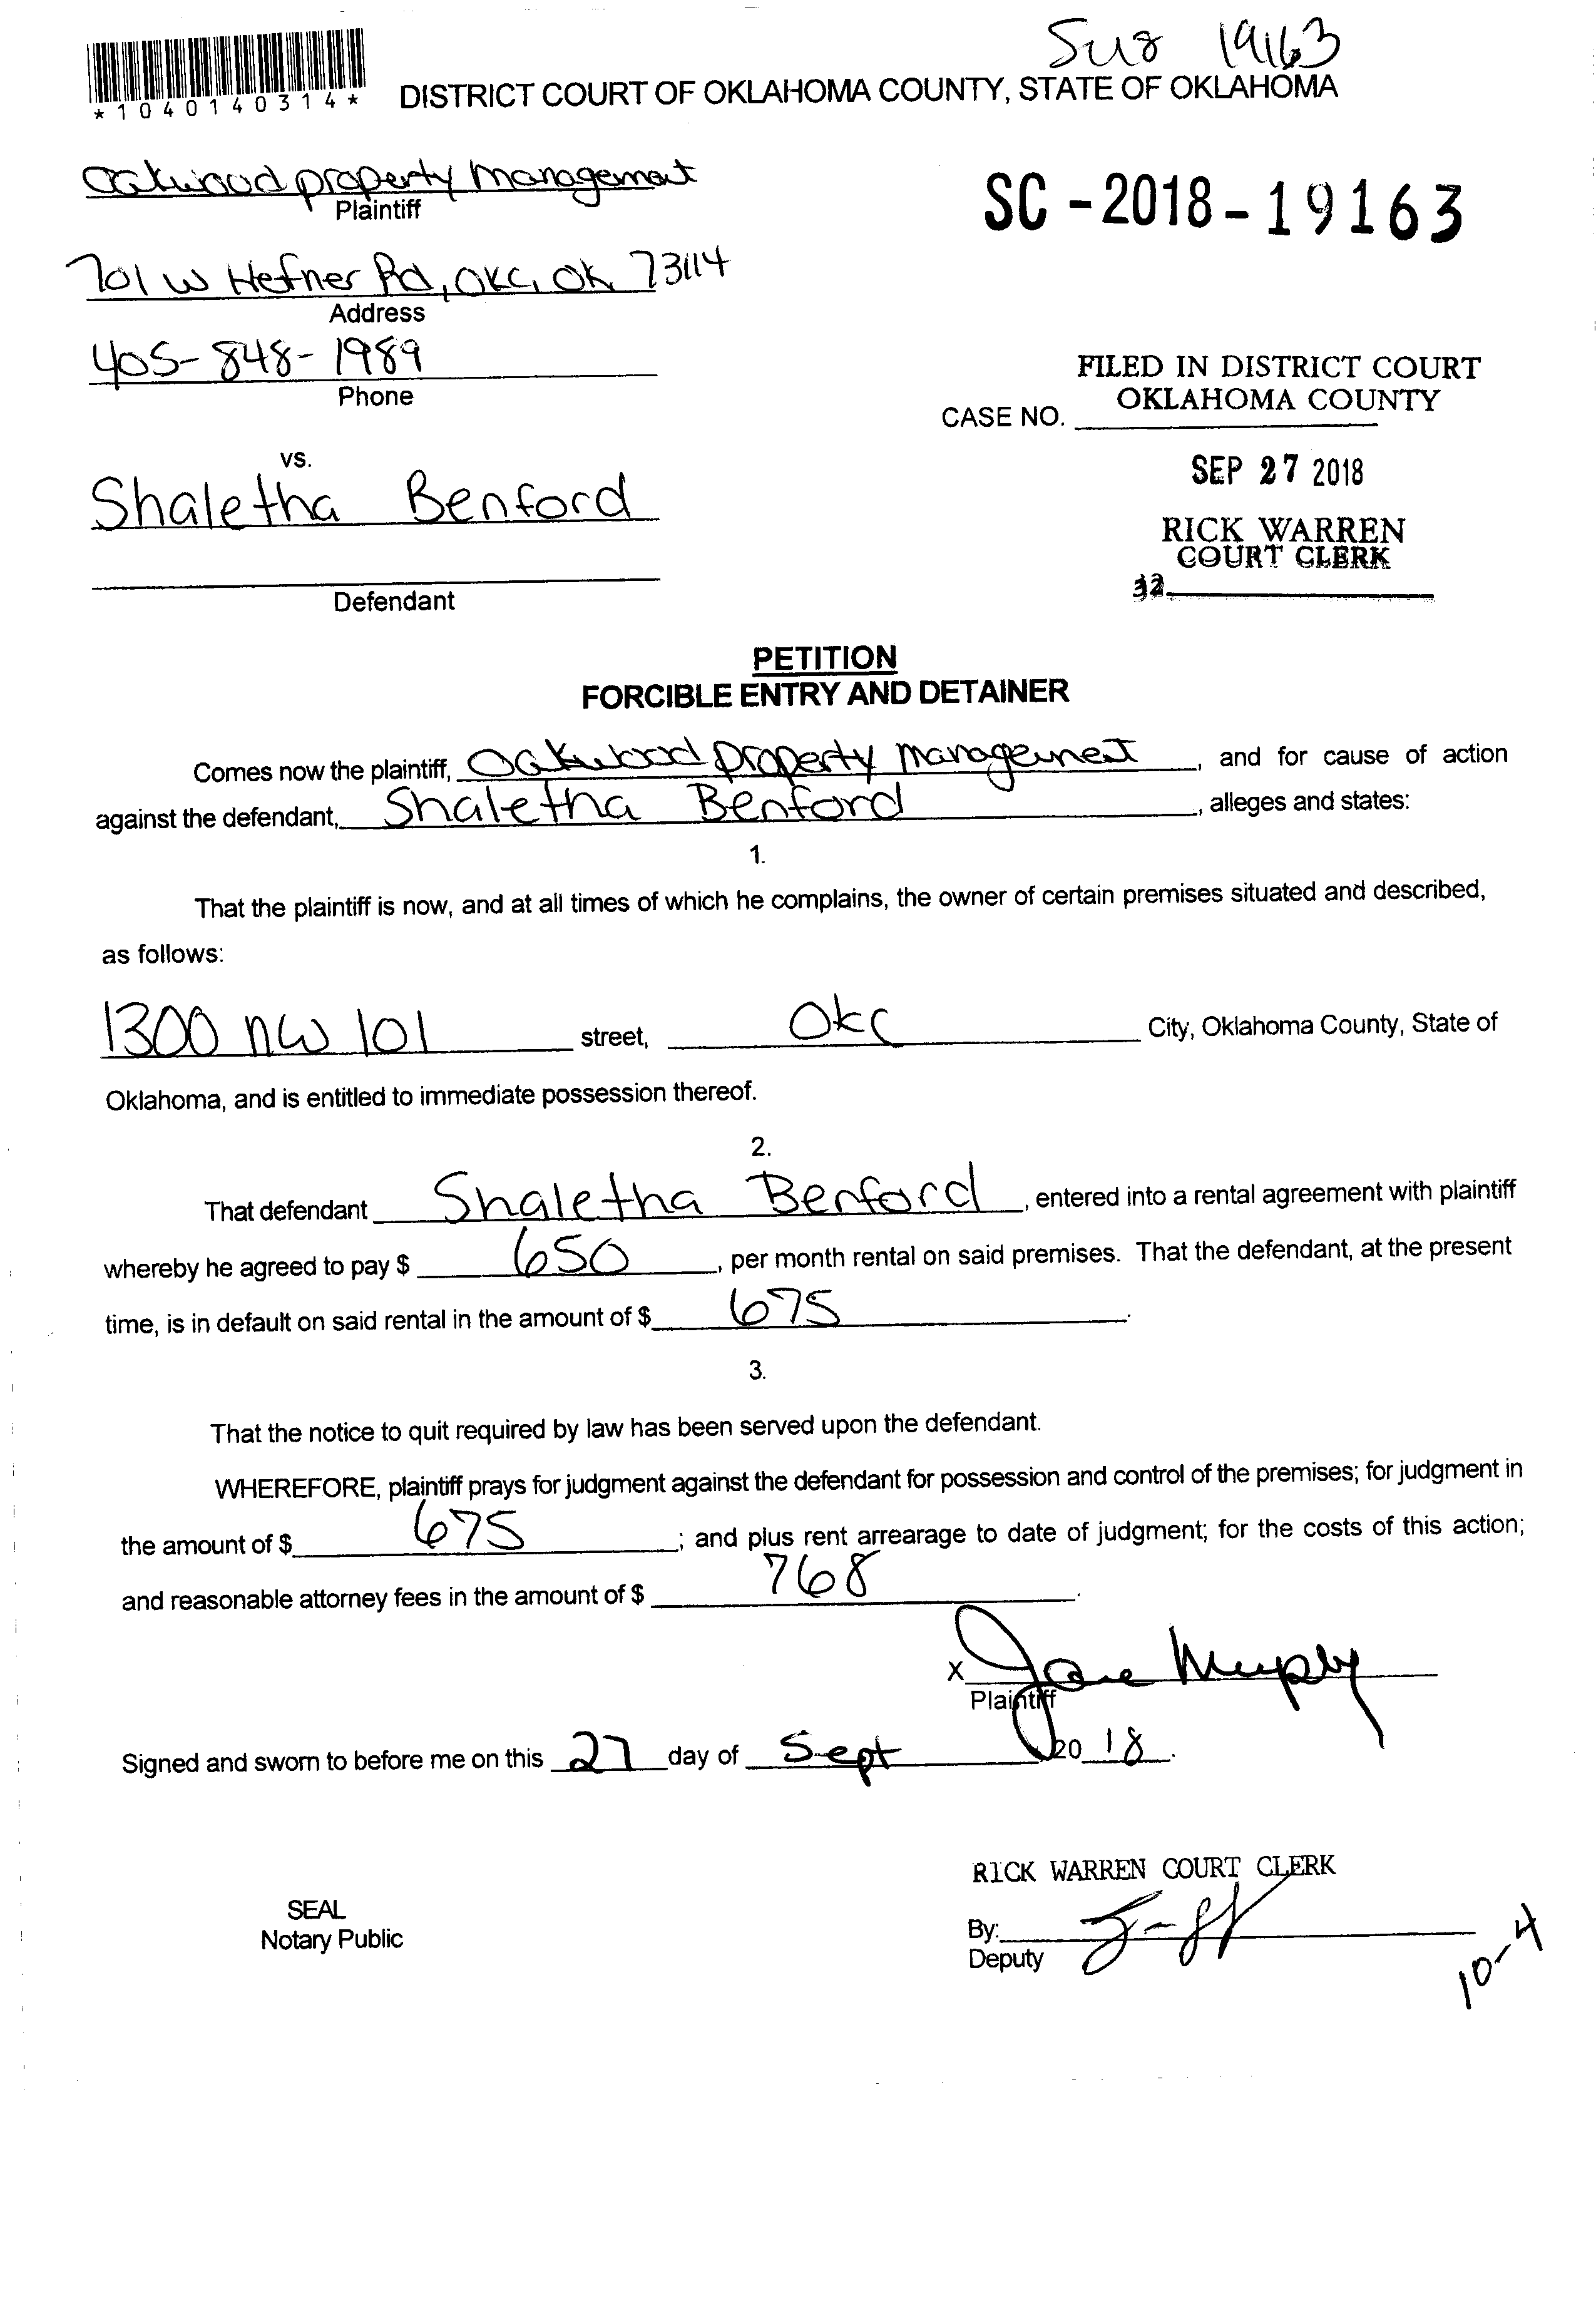 Su8 19163
*1040140314*
DISTRICT COURT OF OKLAHOMA COUNTY, STATE OF OKLAHOMA
Oakwood property Management
Plaintiff
SC - 2018 - 19163
701 W Hefner Rd, OKC, OK 73114
Address
405-848-1989
Phone
FILED IN DISTRICT COURT
OKLAHOMA COUNTY
CASE NO.
SEP 27 2018
RICK WARREN
COURT CLERK
vs.
Shaletha Benford
Defendant
PETITION
FORCIBLE ENTRY AND DETAINER
Comes now the plaintiff, Oakwood property management, and for cause of action
against the defendant, Shaletha Benford, alleges and states:
1.
That the plaintiff is now, and at all times of which he complains, the owner of certain premises situated and described,
as follows:
1300 NW 101 street, OKC City, Oklahoma County, State of
Oklahoma, and is entitled to immediate possession thereof.
2.
That defendant Shaletha Benford, entered into a rental agreement with plaintiff
whereby he agreed to pay $ 650, per month rental on said premises. That the defendant, at the present
time, is in default on said rental in the amount of $ 675.
3.
That the notice to quit required by law has been served upon the defendant.
WHEREFORE, plaintiff prays for judgment against the defendant for possession and control of the premises; for judgment in
the amount of $ 675; and plus rent arrearage to date of judgment; for the costs of this action;
and reasonable attorney fees in the amount of $ 768.
X Jane Murphy
Plaintiff
Signed and sworn to before me on this 27 day of Sept 20 18.
RICK WARREN COURT CLERK
SEAL
Notary Public
By:
Deputy
10-4